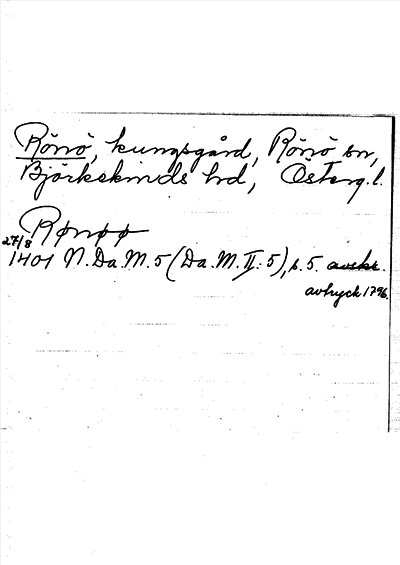 Rönö, kungsgård, Rönö sn,
Björkekinds hd, Österg. l.
Rønøø
27/8
1401 N. Da. M. 5 (Da. M. II: 5), s. 5. avskr.
avtryck 1796.